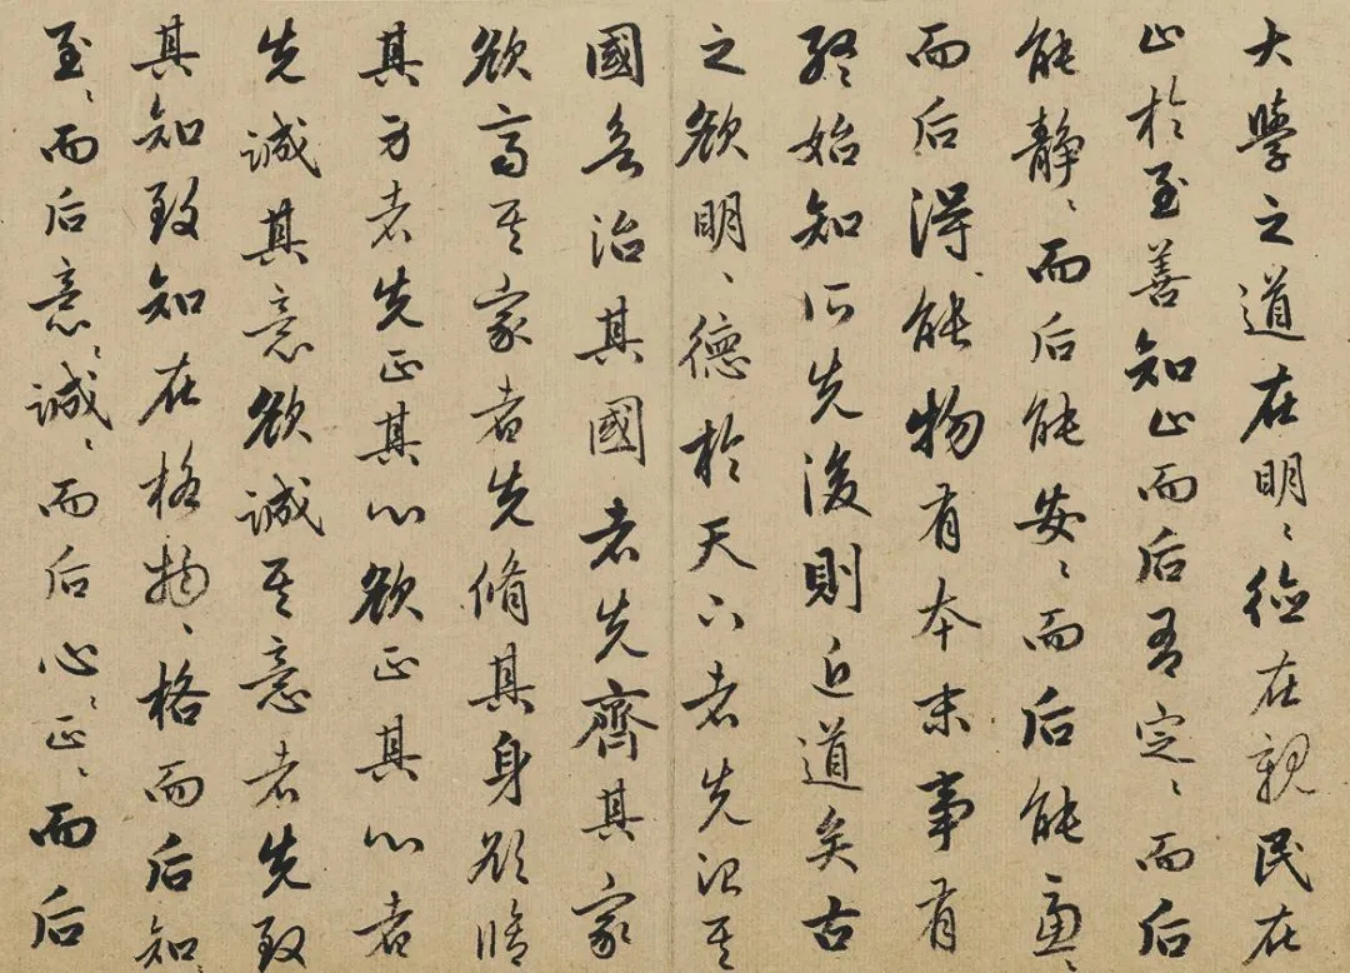 大學之道在明〻德在親民在
止於至善知止而后有定〻而后
能靜〻而后能安〻而后能慮〻
而后得能物有本末事有
終始知所先後則近道矣古
之欲明〻德於天下者先治其
國治其國者先齊其家
欲齊其家者先脩其身欲脩
其身者先正其心欲正其心者
先誠其意欲誠其意者先致
其知致知在格物〻格而后知〻
至〻而后意〻誠〻而后心〻正〻而后